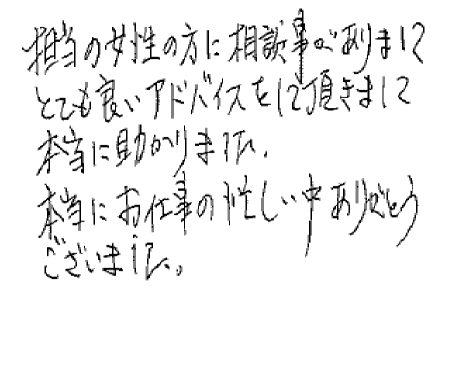 担当の女性の方に相談事がありまして
とても良いアドバイスをして頂きまして
本当に助かりました。
本当にお仕事の忙しい中ありがとう
ございました。